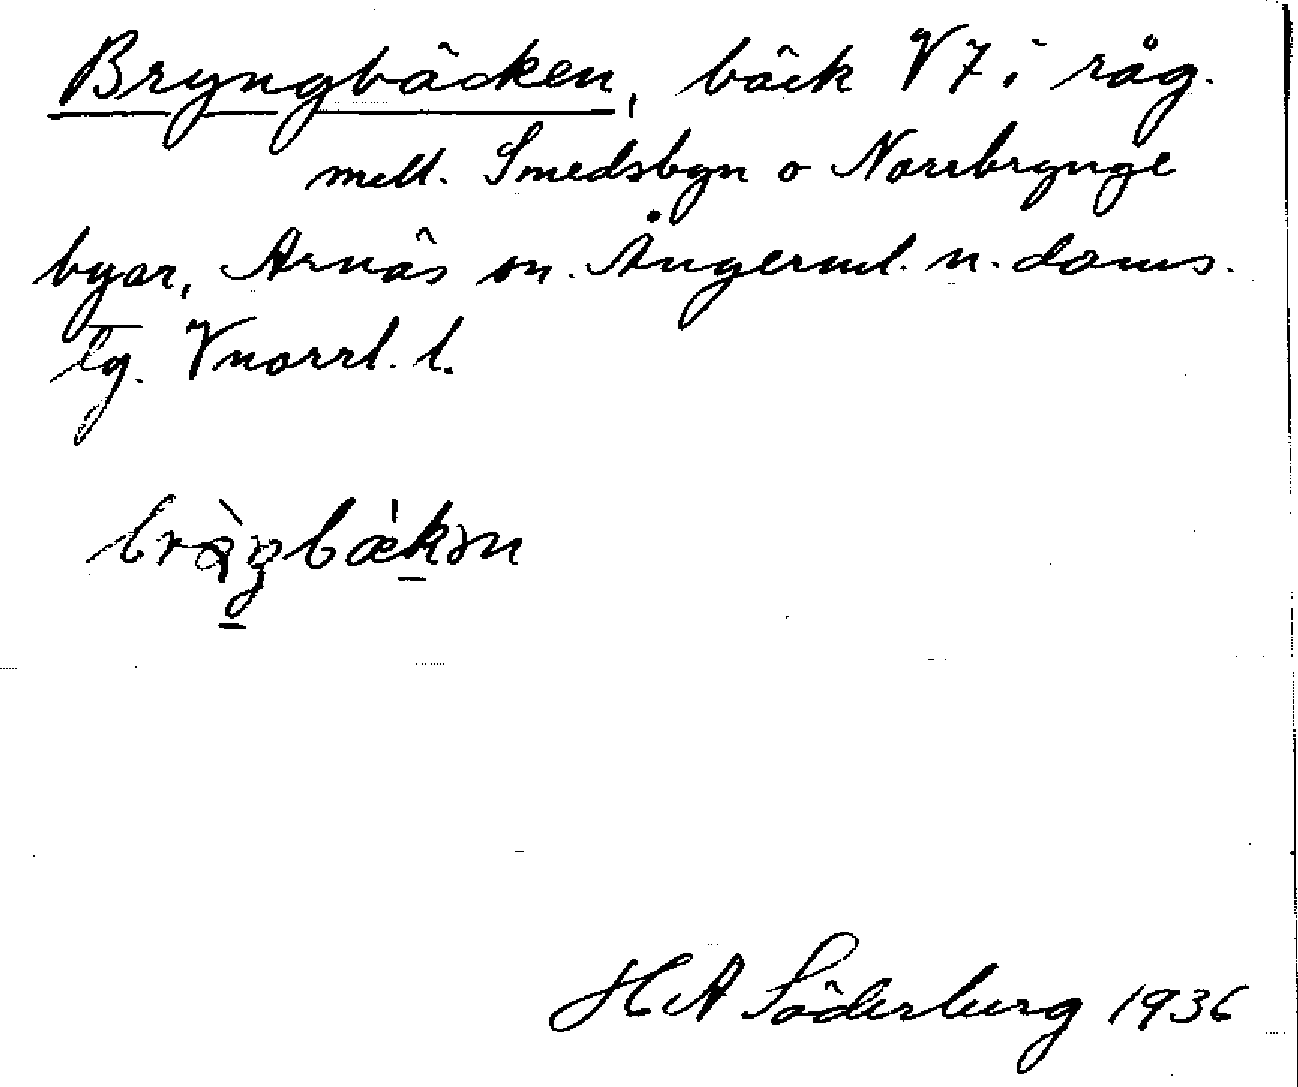 Bryngbäcken, bäck V7 i råg.
mell. Smedsbyn o Norrbrynge
byar, Arnäs sn. Ångerml. n. doms.
lg. Vnorrl. l.
H A Söderberg 1936